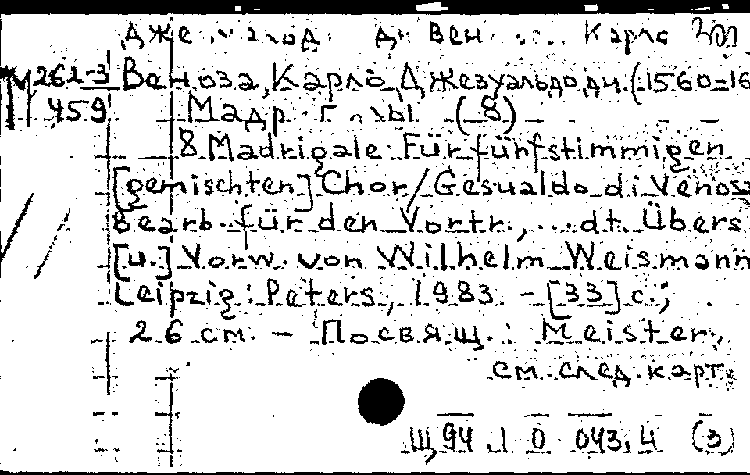 Карло
М 262-3 Веноза, Карло Джезуальдо ди. (1560-16
459 Мадр (8)
8 Madrigale: Für fünfstimmigen
[gemischten] Chor/Gesualdo di Venos
Bearb. für den Vortr., ... dt. Übers
[u.] Vorw. von Wilhelm Weismann
Leipzig: Peters, 1983. - [33] с.;
26 см. - Посвящ.: Meister,
см. след. карт.
Щ 94.1 0 043.4 (3)